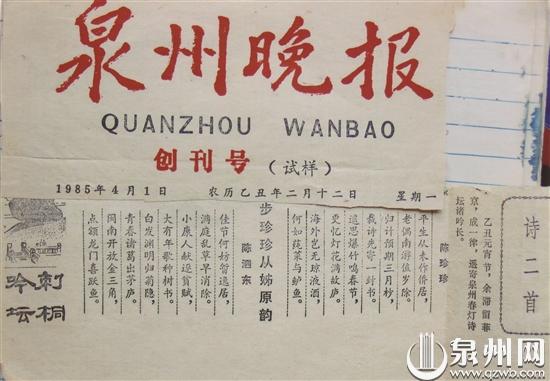 泉州晚报
QUANZHOU WANBAO
创刊号(试样)
1985年4月1日 农历乙丑年二月十二日 星期一
诗二首
乙丑元宵节,余滞留菲
京,成一律,遥寄泉州春灯诗
坛诸吟长。
陈珍珍
平生从未作侨居,
老偶南游值岁除。
归计预期三月杪,
裁诗先寄一封书。
遥思爆竹鸣春节,
更忆灯花满故庐。
海外岂无琼液酒,
何如蔬菜与鲈鱼。
步珍珍从姊原韵
陈泗东
佳节何妨暂逸居,
满庭乱草早消除。
小康人献逐贫赋,
大有年歌种树书。
白发渊明归菊隐,
青春诸葛出茅庐。
闽南开放金三角,
点额龙门喜跃鱼。
刺桐
吟坛
泉州网
www.qzwb.com